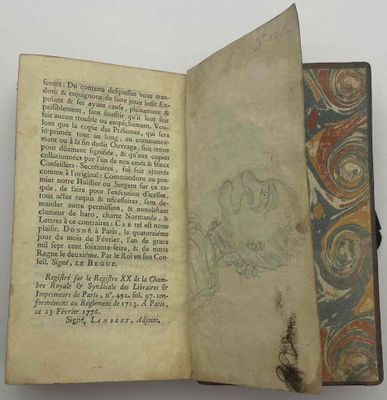 sentes: Du contenu desquelles vous man-
dons & enjoignons de faire jouir ledit Ex-
posant & ses ayans cause, pleinement &
paisiblement, sans souffrir qu'il leur soit
fait aucun trouble ou empêchement. Vou-
lons que la copie des Présentes, qui sera
imprimée tout au long, au commence-
ment ou à la fin dudit Ouvrage, soit tenue
pour duement signifiée, & qu'aux copies
collationnées par l'un de nos amés & féaux
Conseillers-Secrétaires, foi soit ajoutée
comme à l'original: Commandons au pre-
mier notre Huissier ou Sergent sur ce re-
quis, de faire pour l'exécution d'icelles,
tous actes requis & nécessaires, sans de-
mander autre permission, & nonobstant
clameur de haro, charte Normande, &
Lettres à ce contraires: CAR tel est notre
plaisir. DONNÉ à Paris, le quatorzième
jour du mois de Février, l'an de grace
mil sept cent soixante-seize, & de notre
Regne le deuxième. Par le Roi en son Con-
seil, Signé, LE BEGUE.
Registré sur le Registre XX de la Cham-
bre Royale & Syndicale des Libraires &
Imprimeurs de Paris, n°. 492. fol. 97. con-
formément au Réglement de 1723. A Paris,
ce 23 Février 1776.
Signé, LAMBERT, Adjoint.